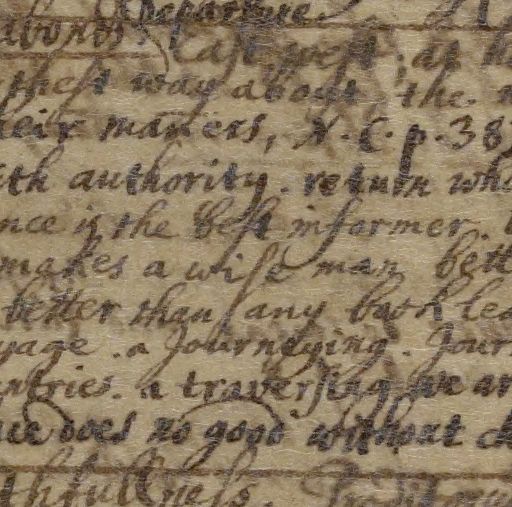 Departure.
abonds. East. west; at
thest way about. the
heir makers, N. C. p. 38
ith authority. return
nce is the best informer.
makes a wise man bett
better than any book lea
yage. a Journeying. Jour
ntries. a traversing. we ar
nce does no good without
thfullness.